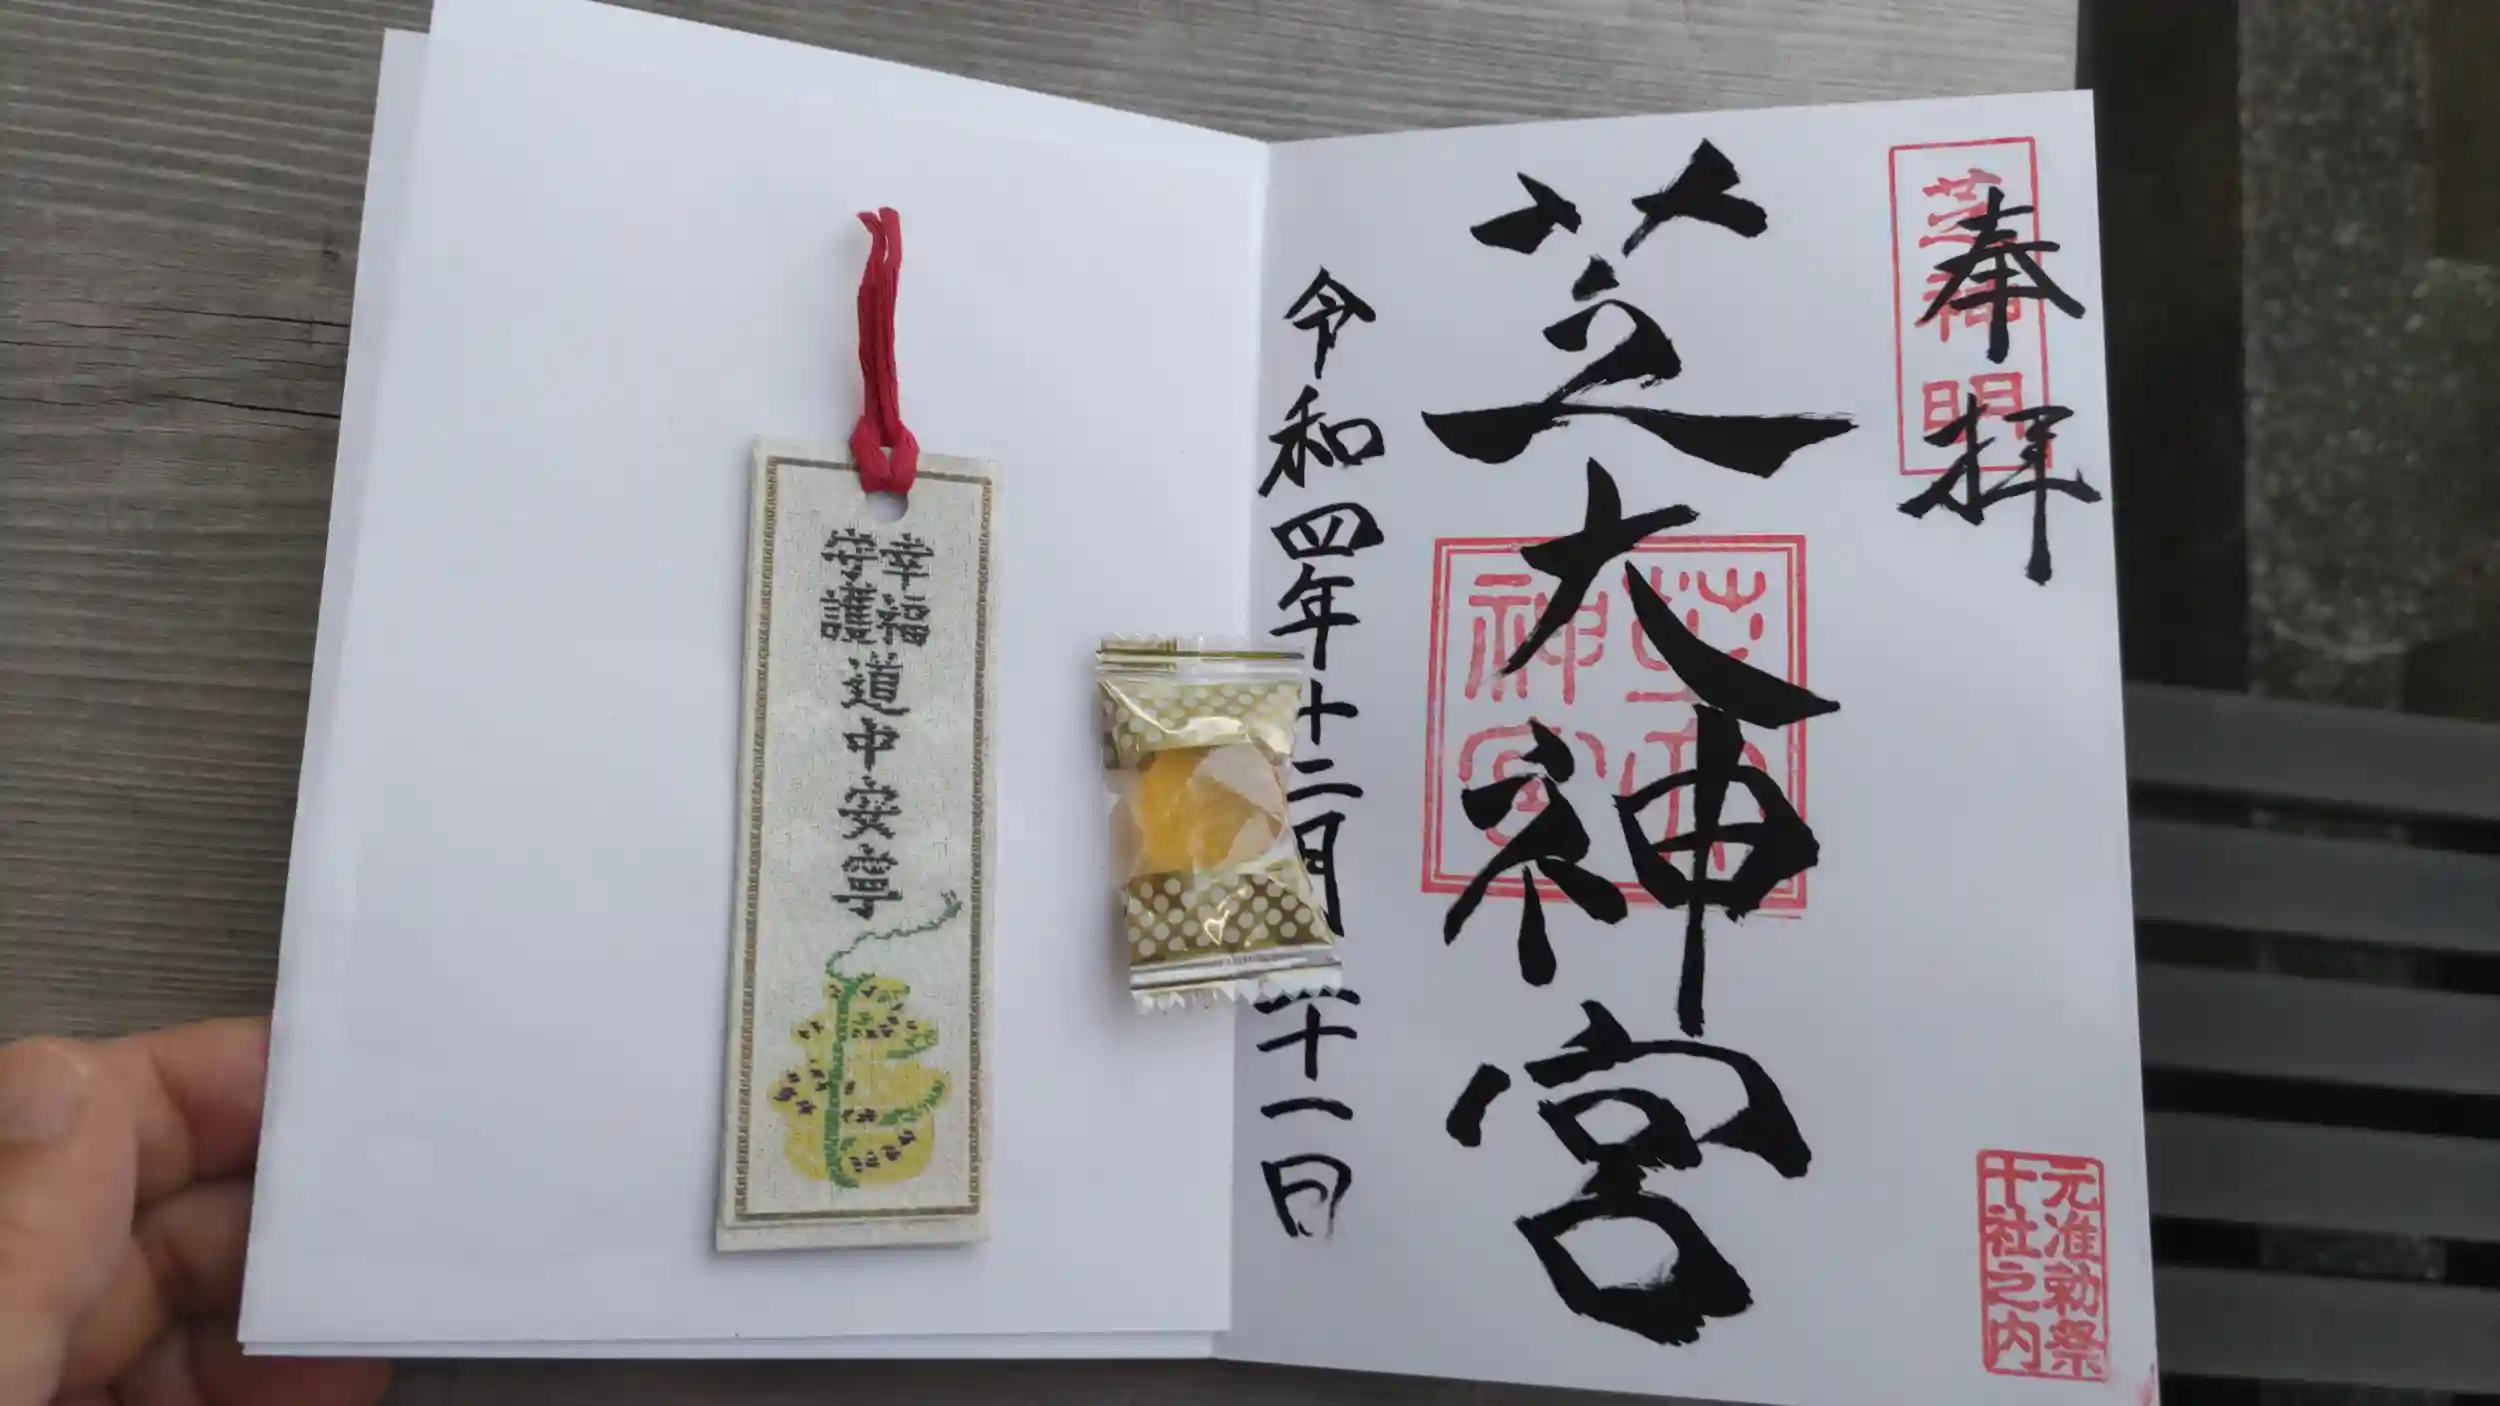 奉拝
芝神明
芝大神宮
芝大神宮
令和四年十二月二十一日
元准勅祭
十社之内
幸福
守護
道中安全